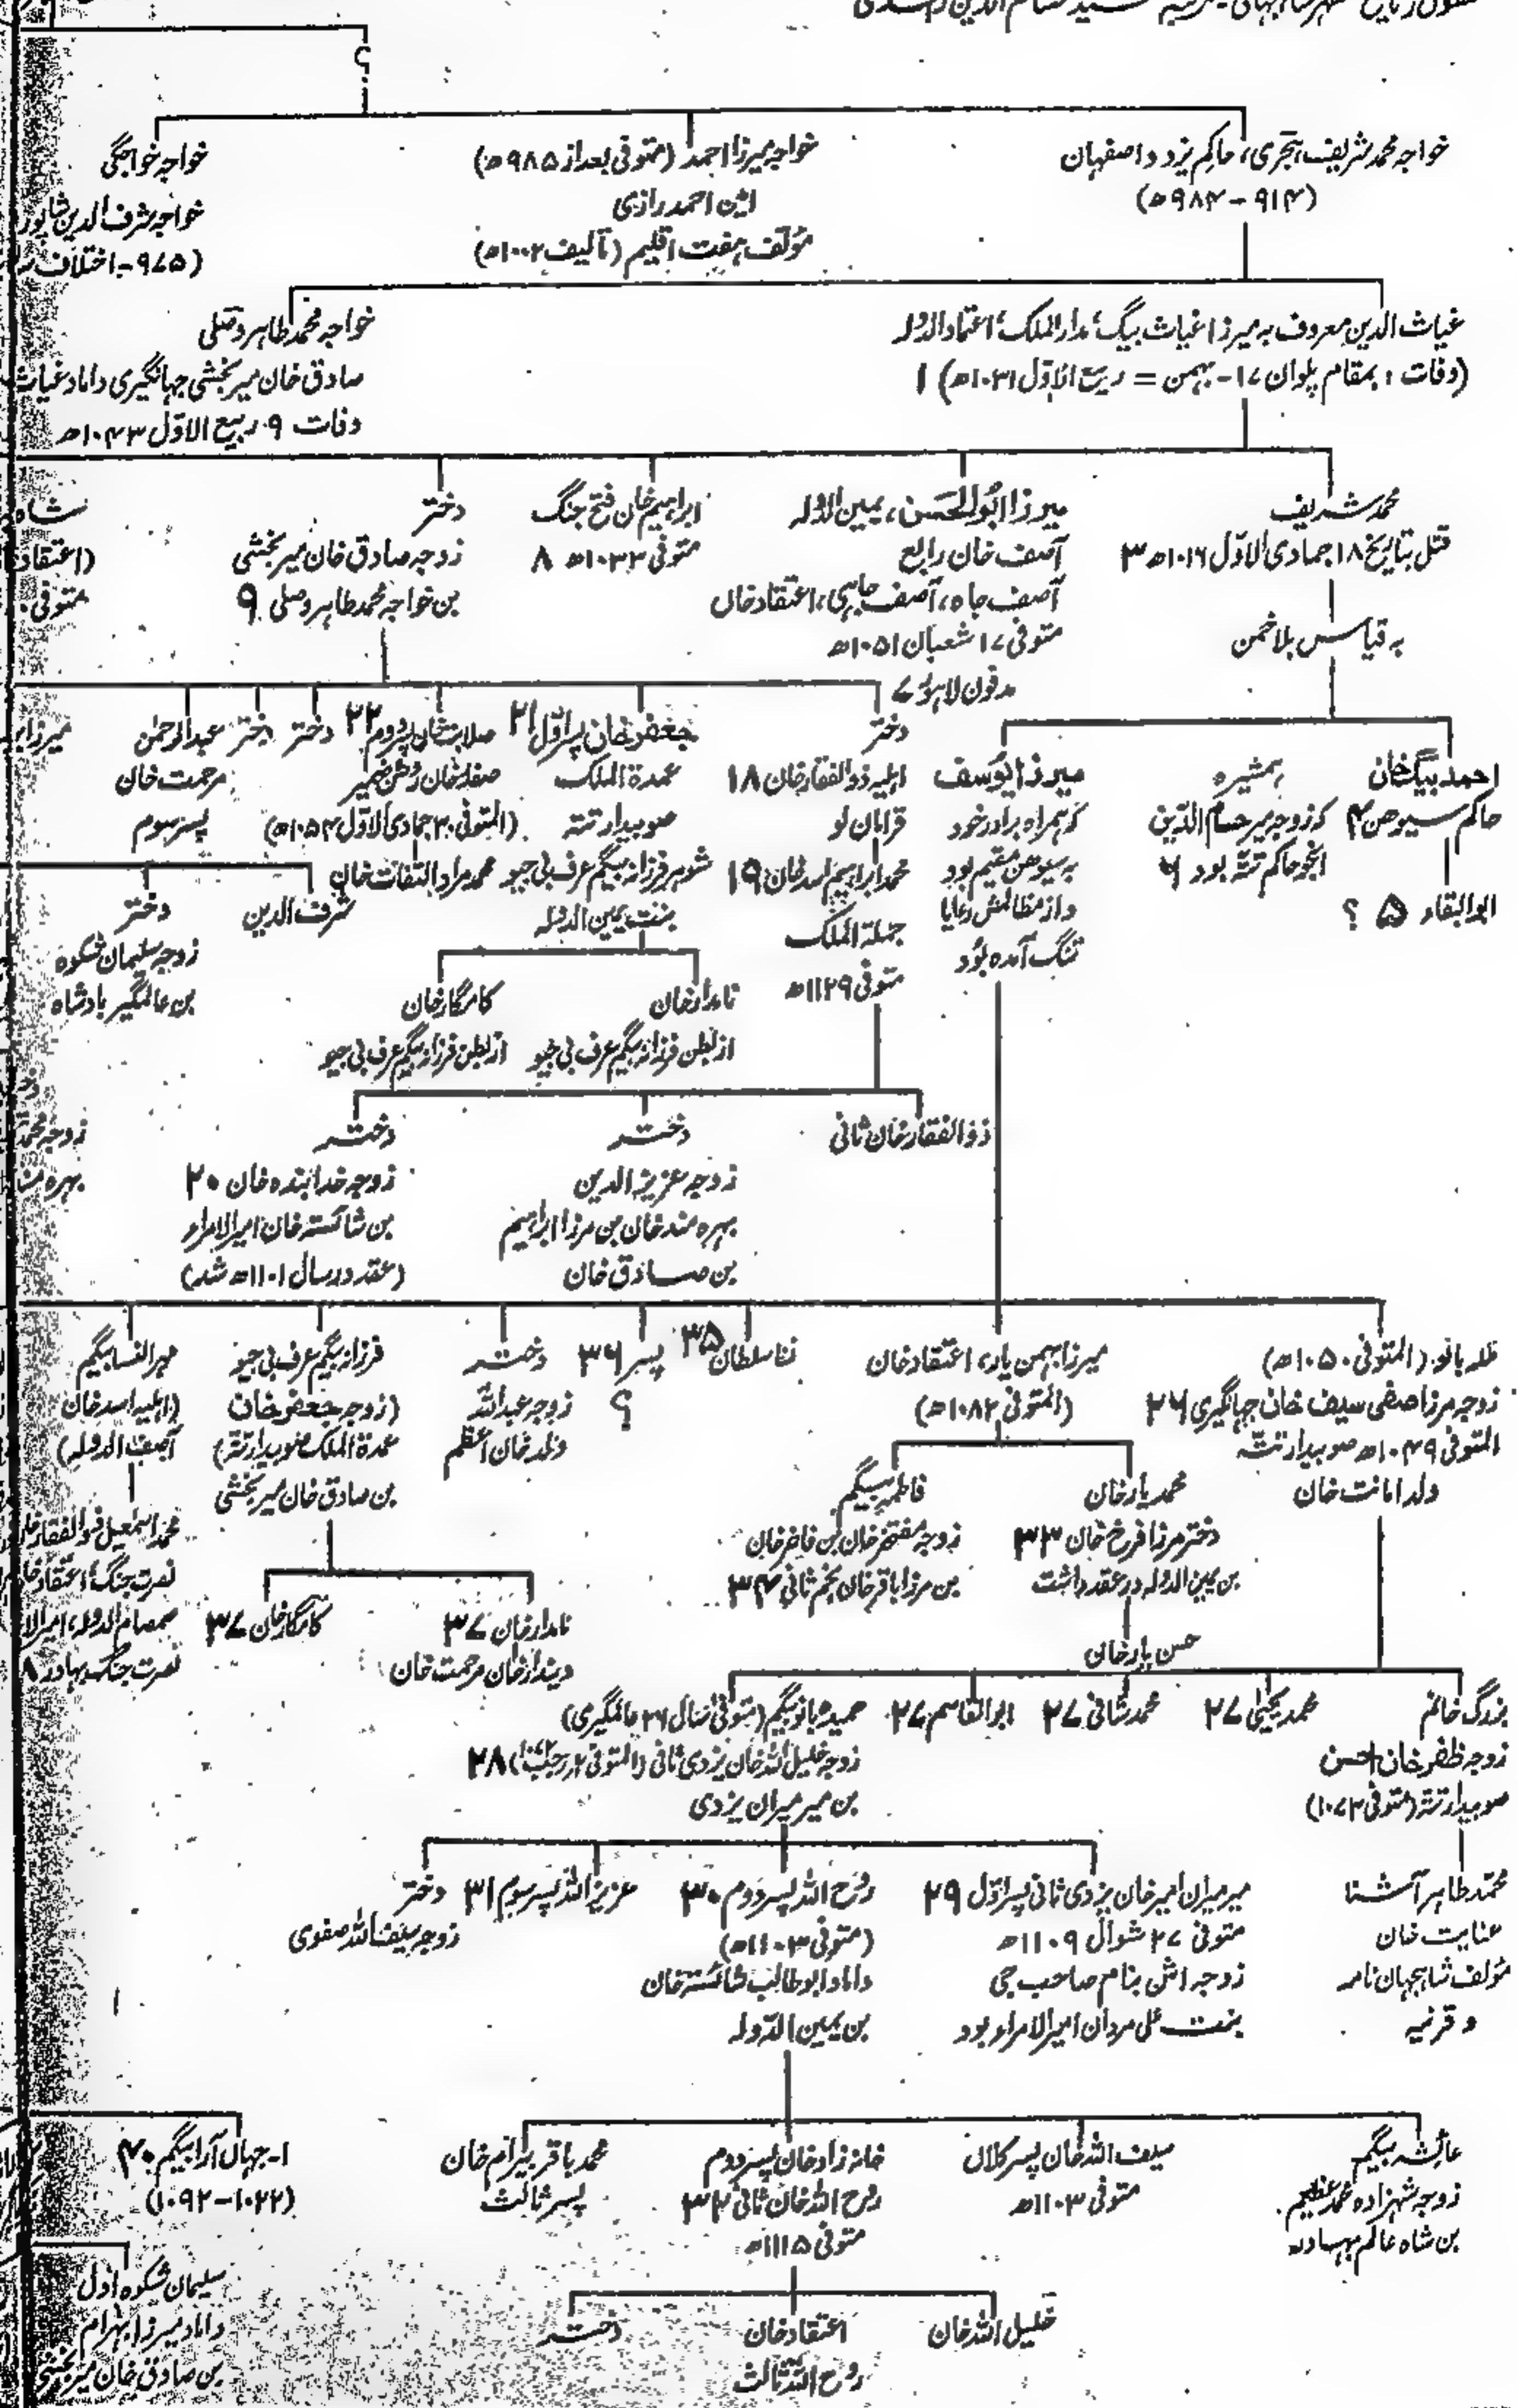 خواجہ محمد شریف ہجری، حاکم یزد و اصفہان
(۹۱۴ - ۹۸۴ھ)
خواجہ میرزا احمد (متوفی بعد از ۹۸۵ھ)
امین احمد رازی
مؤلف ہفت اقلیم (تالیف ۱۰۰۲ھ)
خواجہ خواجگی
خواجہ شرف الدین شاپور
(۹۷۵-اختلاف
غیاث الدین معروف بہ میرزا غیاث بیگ، مدار الملک، اعتماد الدولہ
(وفات : بمقام پلوان ۱۷- بہمن = ربیع الاوّل ۱۰۳۱ھ) ۱
خواجہ محمد طاہر وصلی
صادق خان میر بخشی جہانگیری داماد غیاث
وفات ۹ ربیع الاوّل ۱۰۴۳ھ
محمد شریف
قتل بتاریخ ۱۸ جمادی الاوّل ۱۰۱۶ھ ۳
بہ قیاس بلاخمن
میرزا ابوالحسن، یمین الدولہ
آصف خان رابع
آصف جاہ، آصف جاہی، اعتقاد خان
متوفی ۱۷ شعبان ۱۰۵۱ھ
مدفون لاہور ۷
ابراہیم خان فتح جنگ
متوفی ۱۰۳۳ھ ۸
دختر
زوجہ صادق خان میر بخشی
بن خواجہ محمد طاہر وصلی ۹
شاہ
(اعتقاد
متوفی
احمد بیگ خان
حاکم سیوھن ۴
ابوالبقاء ۵ ؟
ہمشیرہ
کہ زوجہ میر حسام الدین
انجو حاکم تتہ بود ۶
میرزا یوسف
کہ ہمراہ برادر خود
بہ سیوھن مقیم بود
و از مظالمش رعایا
تنگ آمدہ بود
دختر
اہلیہ ذوالفقار خان ۱۸
قرامان لو
محمد ابراہیم اسد خان ۱۹
جملۃ الملک
متوفی ۱۱۲۹ھ
جعفر خان پسر اوّل ۲۱
عمدۃ الملک
صوبیدار تتہ
شوہر فرزانہ بیگم عرف بی جیو
بنت یمین الدولہ
صلابت خان پسر دوم ۲۲
(المتوفی ۳۰ جمادی الاوّل ۱۰۵۴ھ)
محمد مراد التفات خان
دختر
دختر
عبد الرحمٰن
مرحمت خان
پسر سوم
میرزا
شرف الدین
دختر
زوجہ سلیمان شکوہ
بن عالمگیر بادشاہ
نامدار خان
از بطن فرزانہ بیگم عرف بی جیو
کامگار خان
از بطن فرزانہ بیگم عرف بی جیو
ذوالفقار خان ثانی
دختر
زوجہ عزیز الدین
بہرہ مند خان بن مرزا ابراہیم
بن صادق خان
دختر
زوجہ خدا بندہ خان ۲۰
بن شائستہ خان امیر الامراء
(عقد در سال ۱۱۰۱ھ شد)
زوجہ محمد
بہرہ
(المتوفی ۱۰۵۰ھ)
زوجہ مرزا صفی سیف خان جہانگیری ۲۶
المتوفی ۱۰۴۹ھ صوبیدار تتہ
ولد امانت خان
میرزا بہمن یار، اعتقاد خان
(المتوفی ۱۰۸۲ھ)
سلطان ۳۵
پسر ۳۶
؟
دختر
زوجہ عبداللہ
ولد خان اعظم
فرزانہ بیگم عرف بی جیو
(زوجہ جعفر خان
عمدۃ الملک صوبیدار تتہ)
بن صادق خان میر بخشی
مہر النسا بیگم
(اہلیہ اسد خان
آصف الدولہ)
محمد اسمٰعیل ذوالفقار خان
نصرت جنگ، اعتقاد خان
صمصام الدولہ، امیر الا
نصرت جنگ بہادر
محمد یار خان
دختر مرزا فرخ خان ۳۳
بن یمین الدولہ در عقد داشت
حسن یار خان
فاطمہ بیگم
زوجہ مفتخر خان بن فاخر خان
بن مرزا باقر خان نجم ثانی ۳۴
نامدار خان ۳۷
دیندار خان مرحمت خان
کامگار خان ۳۷
بزرگ خانم
زوجہ ظفر خان احسن
صوبیدار تتہ (متوفی ۱۰۷۳)
محمد یحییٰ ۲۷
محمد شافی ۲۷
ابو القاسم ۲۷
حمیدہ بانو بیگم (متوفی سال ۲۶ عالمگیری)
زوجہ خلیل اللہ خان یزدی ثانی (المتوفی ۲ رجب) ۲۸
بن میر میران یزدی
محمد طاہر آشنا
عنایت خان
مؤلف شاہجہان نامہ
و قرنیہ
میر میران امیر خان یزدی ثانی پسر اوّل ۲۹
متوفی ۲۷ شوال ۱۱۰۹ھ
زوجہ اش بنام صاحب جی
بنت علی مردان امیر الامراء بود
روح اللہ پسر دوم ۳۰
(متوفی ۱۱۰۳ھ)
داماد ابوطالب شائستہ خان
بن یمین الدولہ
عزیز اللہ پسر سوم ۳۱
دختر
زوجہ سیف اللہ صفوی
عائشہ بیگم
زوجہ شہزادہ محمد عظیم
بن شاہ عالم بہادر
سیف اللہ خان پسر کلاں
متوفی ۱۱۰۳ھ
خانہ زاد خان پسر دوم
روح اللہ خان ثانی ۳۲
متوفی ۱۱۱۵ھ
محمد باقر بیرام خان
پسر ثالث
۱-جہاں آرا بیگم ۴۰
(۱۰۲۲-۱۰۹۲)
سلیمان شکوہ اول
داماد میرزا بہرام
بن صادق خان میر بخشی
خلیل اللہ خان
اعتقاد خان
روح اللہ ثالث
دختر